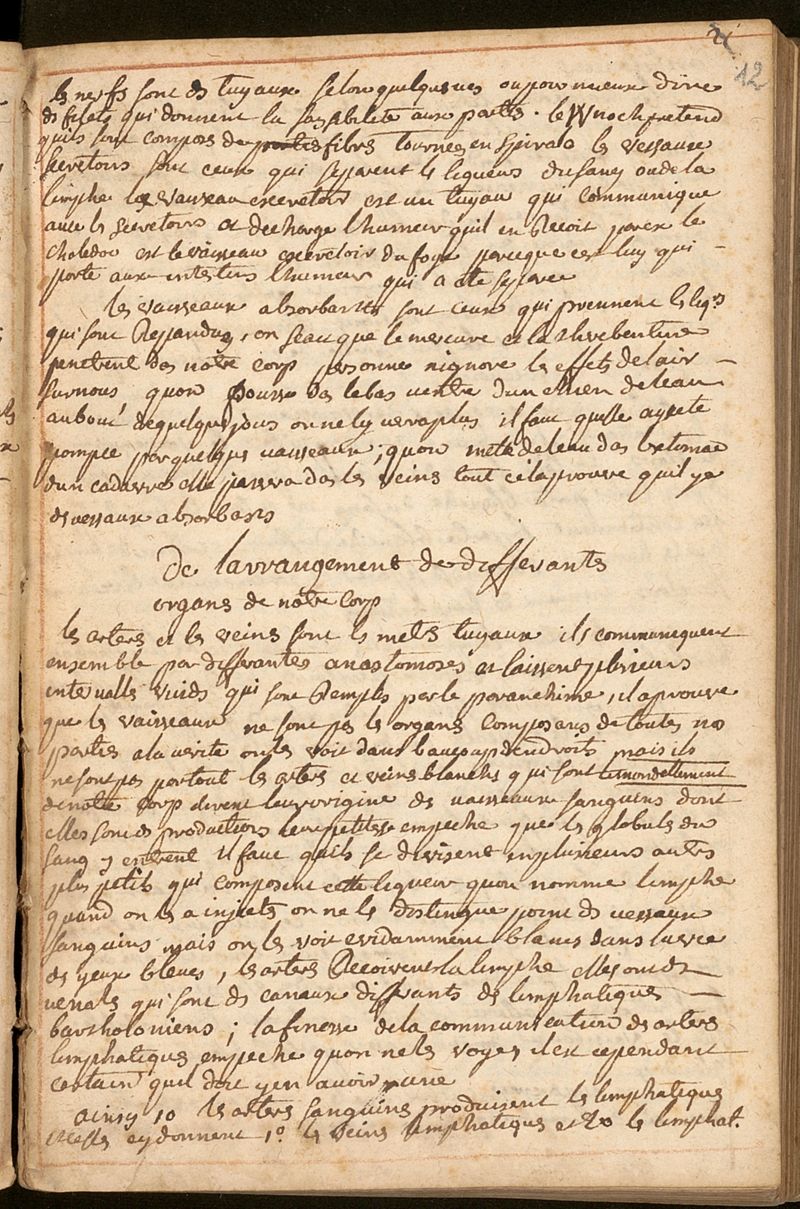 12
les nerfs sont ds tuyaux selon quelques ues ou pour mieux dire
ds filets qui donnent la sensibilite aux partes. le pretend
quils sont composes de fibres tournees en spirals les vessaux
secretoirs sont ceux qui separent ls liqueurs du sang ou de la
limphe le vaisseau excretoir est un tuyau qui communique
avec ls secretoirs et decharge lhumeur quil en recoit parex le
choledoc est le vaisseau excretoir du foye parceque cest luy qui
porte aux intestins lhumeur qui a ete separee
les vaisseaux absorbants sont ceux qui prennent ls liqrs
qui sont repandues, on scait que le mercure et la therebentine
penetrent das notre corp personne nignore les effets de lair
sur nous, quon pousse das le bas ventre dun chien de leau
au bout de quelques jours on ne ly vera plus il faut quelle ay ete
pompee par quelques vaisseaux; quon mete de leau das lestomac
dun cadavre elle passera das les veins tout cela prouve quil ya
ds vessaux absorbants
De larrangement de differants
organs de notre corp
les arters et les veins sont ls tuyaux ils communiquent
ensemble par differantes anastomoses et laissent plusieurs
intervalls vuids qui sont remplis par le paranchime, il a prouvé
que ls vaisseaux ne sont pas ls organs composans de toutes nos
parties a la verite on ls voit dans beaucoup dendroits mais ils
ne sont pas partout les arters et veins blanchs qui sont
de notre corp tirent leur origine ds vaisseaux sanguins dont
elles sont ds productions leur petitesse empeche que ls globuls du
sang y entrent il faut quils se divisent en plusieurs autrs
plus petits qui composent cette liqueur quon nomme limphe
quand on ls a injects on ne ls distingue point ds vessaux
sanguins mais on ls voit evidamment blancs dans
ds yeux bleues, les arters recoivent la limphe elles ont ds
qui sont ds canaux differants ds limphatiques
bartholoniens; la finesse de la communication ds arters
limphatiques empeche quon ne ls voyes il est cependant
certain quil doit y en avoir une
ainsy 1o les arters sanguins produisent ls limphatiques
et elles cy donnent 1o ls veins limphatiques et 2o ls limphat.